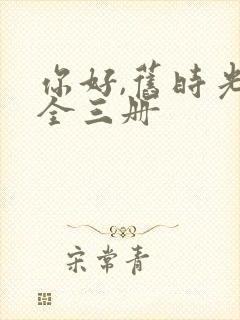 你好,舊時光
全三册
宋常青